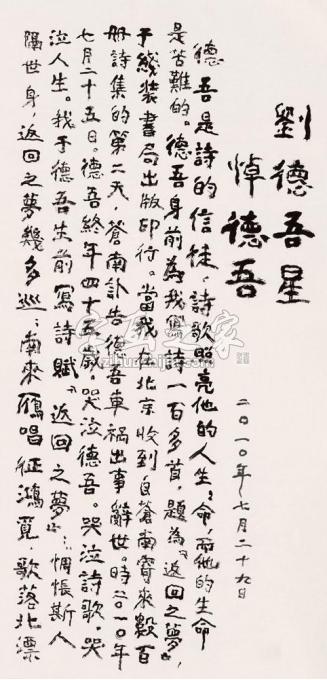 劉德吾星
悼德吾
二〇一〇年七月二十九日
德吾是詩的信徒,詩歌照亮他的人生;命,而他的生命
是苦難的。德吾身前為我寫詩一百多首,題為《返回之夢》,
于綫裝書局出版印行。當我在北京收到自蒼南寄來數百
册詩集的第二天,蒼南訃告德吾車禍出事辭世。時二〇一〇年
七月二十五日。德吾終年四十五歲。哭泣德吾。哭泣詩歌。哭
泣人生。我于德吾生前寫詩賦《返回之夢》:惆悵斯人
隔世身,返回之夢幾多巡;南來雁唱征鴻覓,歌落北漂